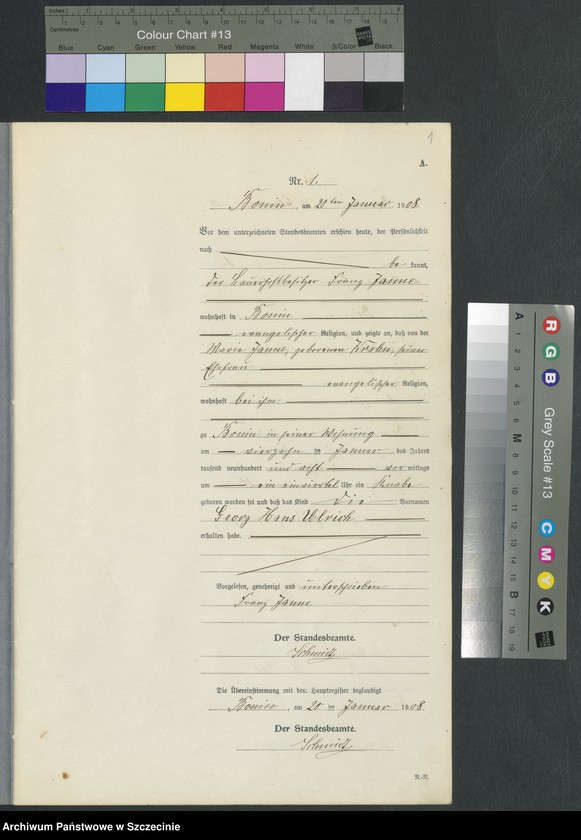 Inches 1 2 3 4 5 6 7 8
Centimetres 1 2 3 4 5 6 7 8 9 10 11 12 13 14 15 16 17 18 19
Colour Chart #13
Blue Cyan Green Yellow Red Magenta White 3/Color Black
1
A.
Nr. 1.
Konin, am 20ten Januar 1908.
Vor dem unterzeichneten Standesbeamten erschien heute, der Persönlichkeit
nach
be kannt,
der Bauerhofbesitzer Franz Janne
wohnhaft in Konin
evangelischer Religion, und zeigte an, daß von der
Marie Janne, geborenen Krohn, seiner
Ehefrau
evangelischer Religion,
wohnhaft bei ihm
zu Konin in seiner Wohnung
am vierzehn ten Januar des Jahres
tausend neunhundert und acht vor mittags
um ein einviertel Uhr ein Knabe
geboren worden sei und daß das Kind die Vornamen
Georg Hans Ulrich
erhalten habe.
Vorgelesen, genehmigt und unterschrieben
Franz Janne
Der Standesbeamte.
Schmidt
Die Übereinstimmung mit dem Hauptregister beglaubigt
Konin, am 20 ten Januar 1908.
Der Standesbeamte.
Schmidt
A 1 2 3 4 5 6 M 8 9 10 11 12 13 14 15 B 17 18 19
R G B Grey Scale #13 C M Y K
Archiwum Państwowe w Szczecinie